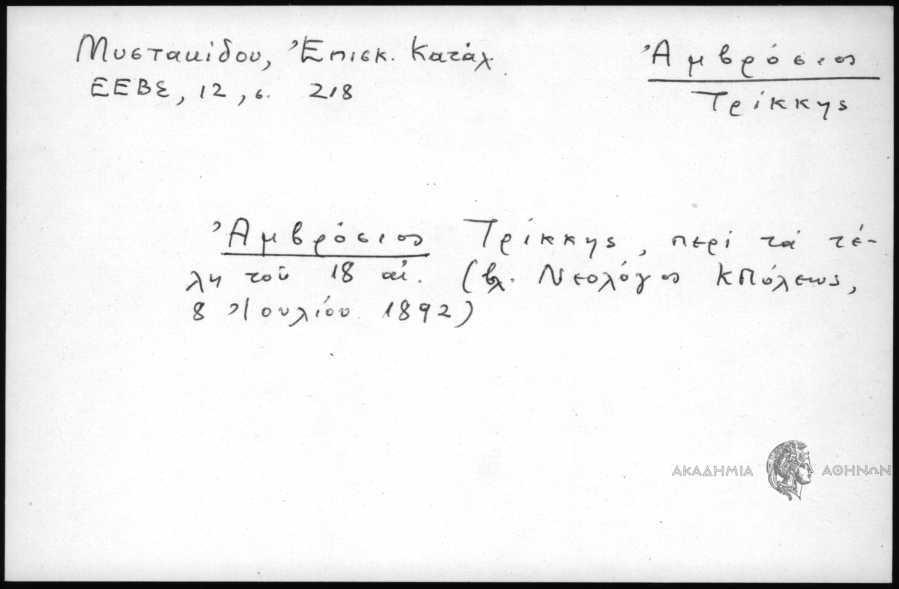 Μυστακίδου, Ἐπισκ. Κατάλ
ΕΕΒΣ, 12, σ. 218
Ἀμβρόσιος
Τρίκκης
Ἀμβρόσιος Τρίκκης, περί τά τέ-
λη τοῦ 18 αἰ. (βλ. Νεολόγος ΚΠόλεως,
8 Ἰουλίου 1892)
ΑΚΑΔΗΜΙΑ ΑΘΗΝΩΝ